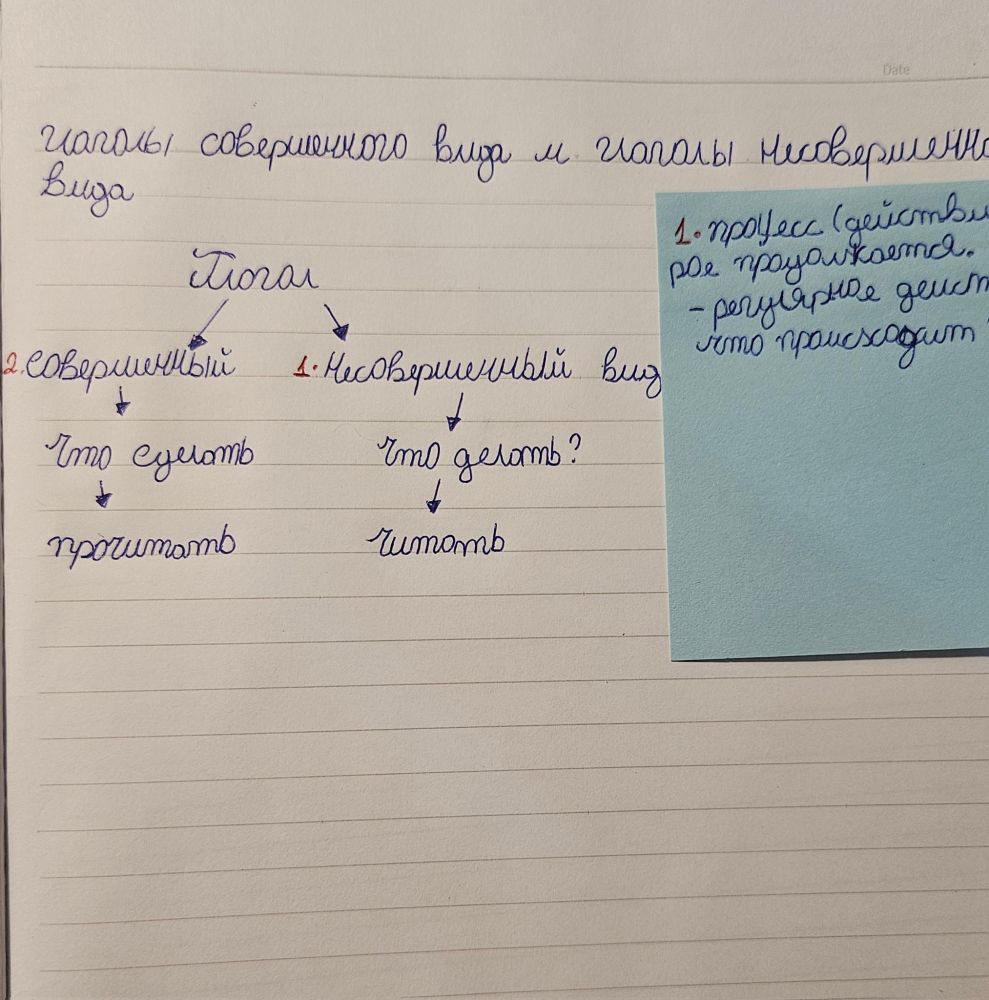 Date
глаголы совершенного вида и глаголы несовершенно
вида
Глагол
2. совершенный 1. Несовершенный вид
Что сделать Что делать?
прочитать читать
1. процесс (действи
рое продолжается.
- регулярное дейст
что происходит